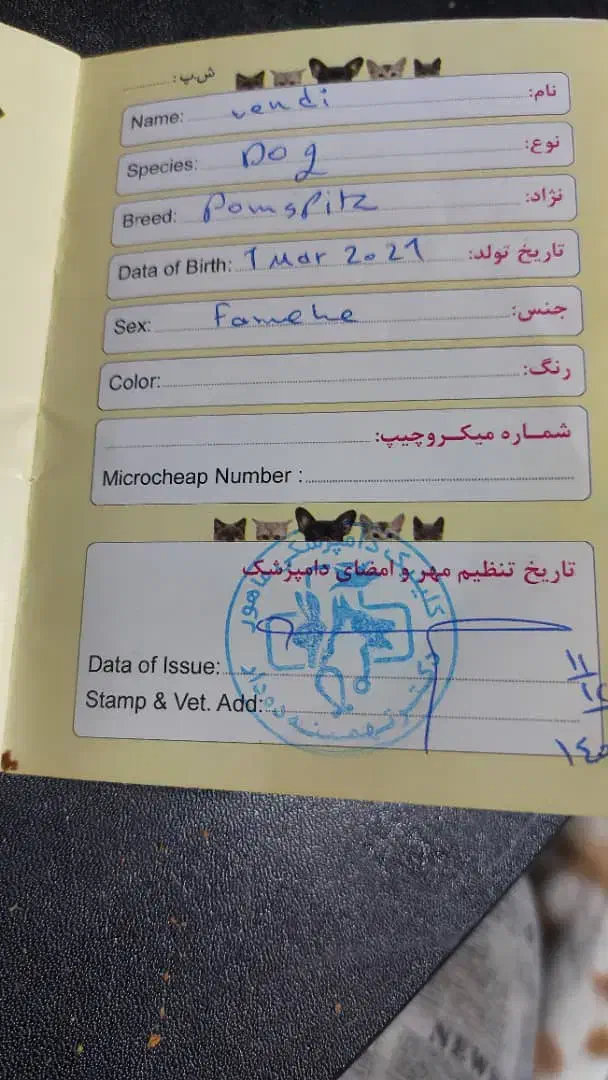 ش.پ:
Name: vendi نام:
Species: Dog نوع:
Breed: Pomspitz نژاد:
Data of Birth: 1 Mar 2021 تاریخ تولد:
Sex: Famehe جنس:
Color: رنگ:
شماره میکروچیپ:
Microcheap Number :
تاریخ تنظیم مهر و امضای دامپزشک
Data of Issue:
Stamp & Vet. Add:
دکتر تهمینه
NEW